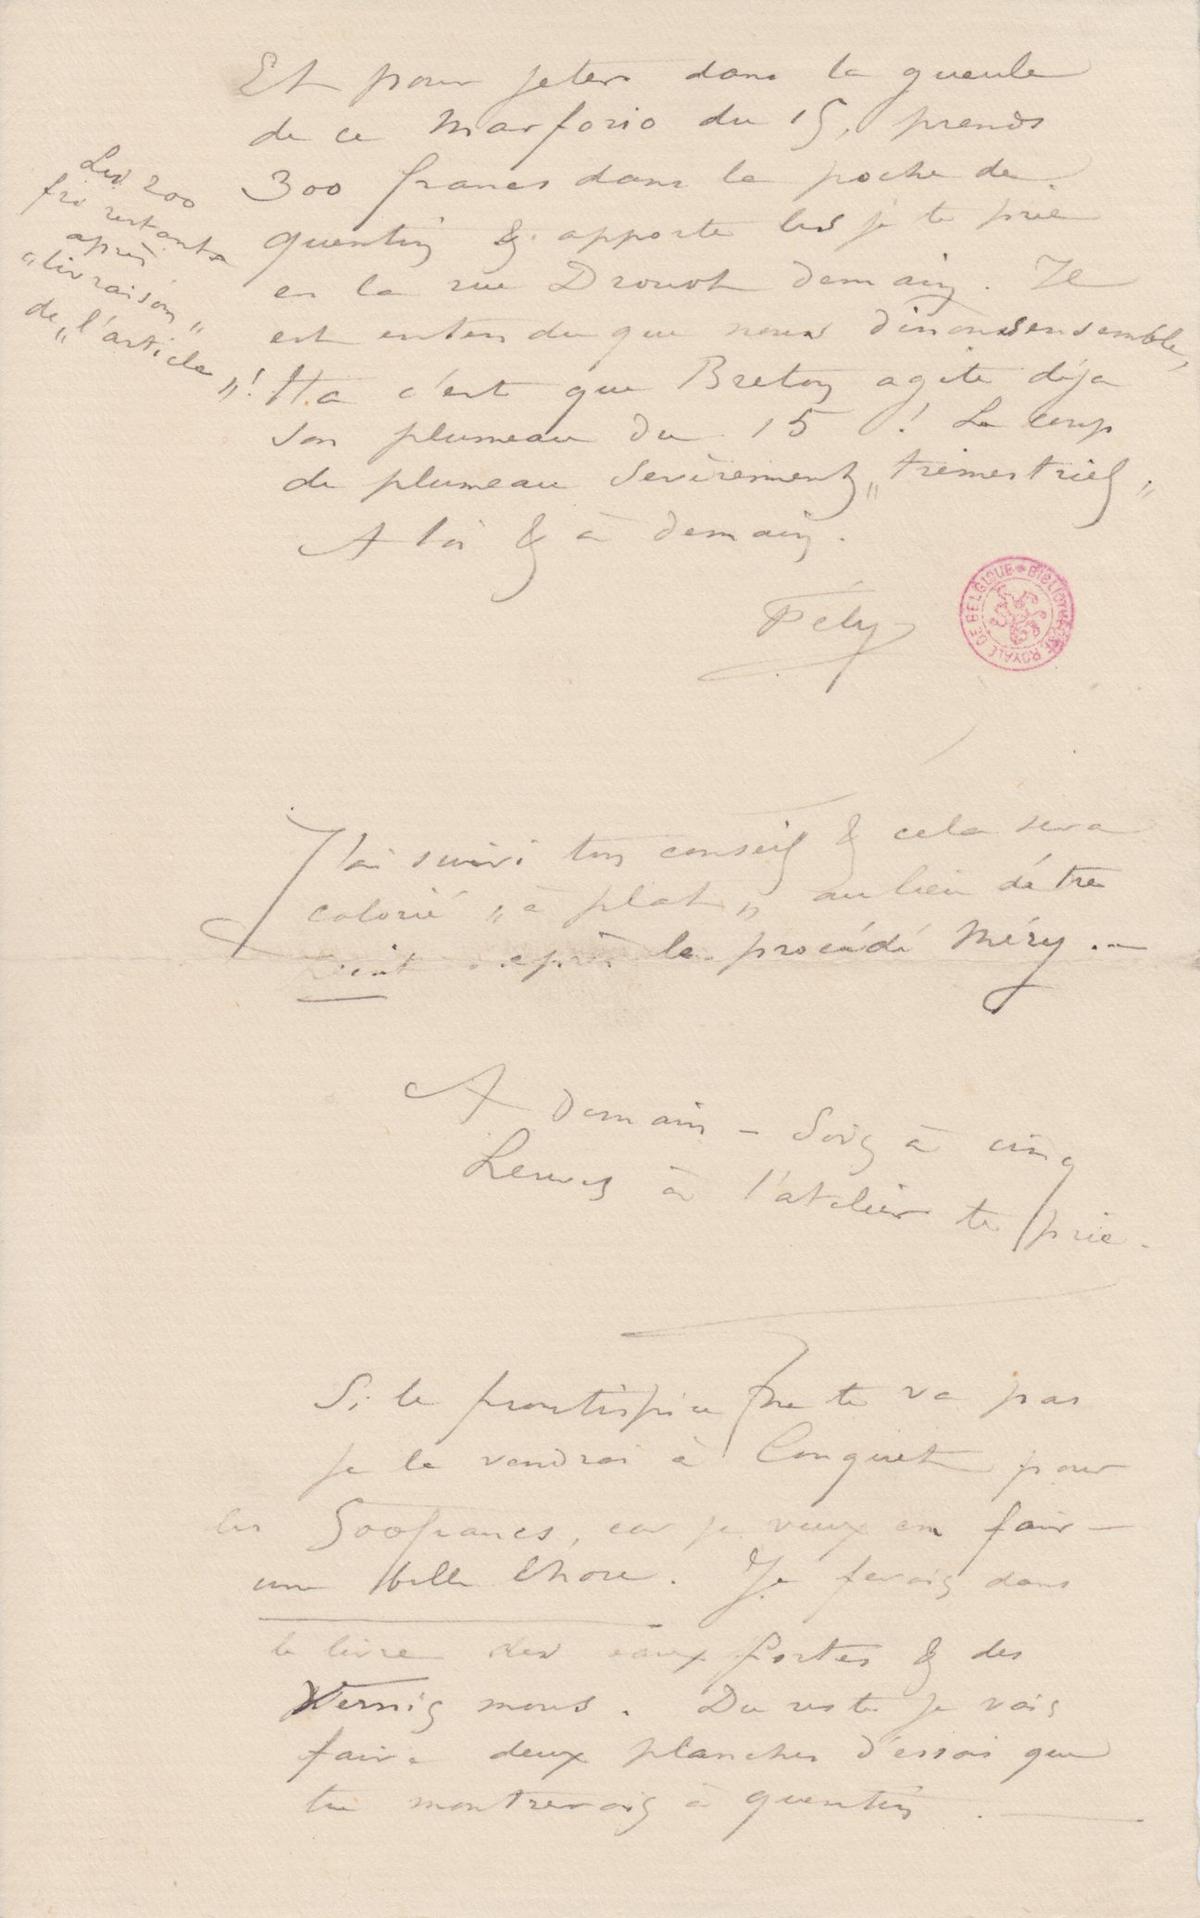 Et pour jeter dans la gueule
de ce Marforio du 15, prends
300 francs dans la poche de
quentin & apporte les je te prie
en la rue Drouot demain. Il
est entendu que nous dinons ensemble,
c'est que Breton agite déja
son plumeau du 15 ! Le coup
de plumeau sevèrement „trimestriel„
A toi & à demain.
Fély
Les 200
frs restants
après
"livraison„
de „l'article„!
BIBLIOTHEQUE ROYALE DE BELGIQUE
J'ai suivi ton conseil & cela sera
colorié „à plat„ au lieu d'être
le procédé Méry.—
A demain – Sois à cinq
heures à l'atelier te prie.
Si le frontispice ne te va pas
je le vendrai à Conquet pour
les 500 francs, car je veux en faire
une belle chose. Je ferais dans
le livre des eaux fortes & des
Vernis mous. Du reste je vais
faire deux planches d'essai que
tu montrerais à quentin.